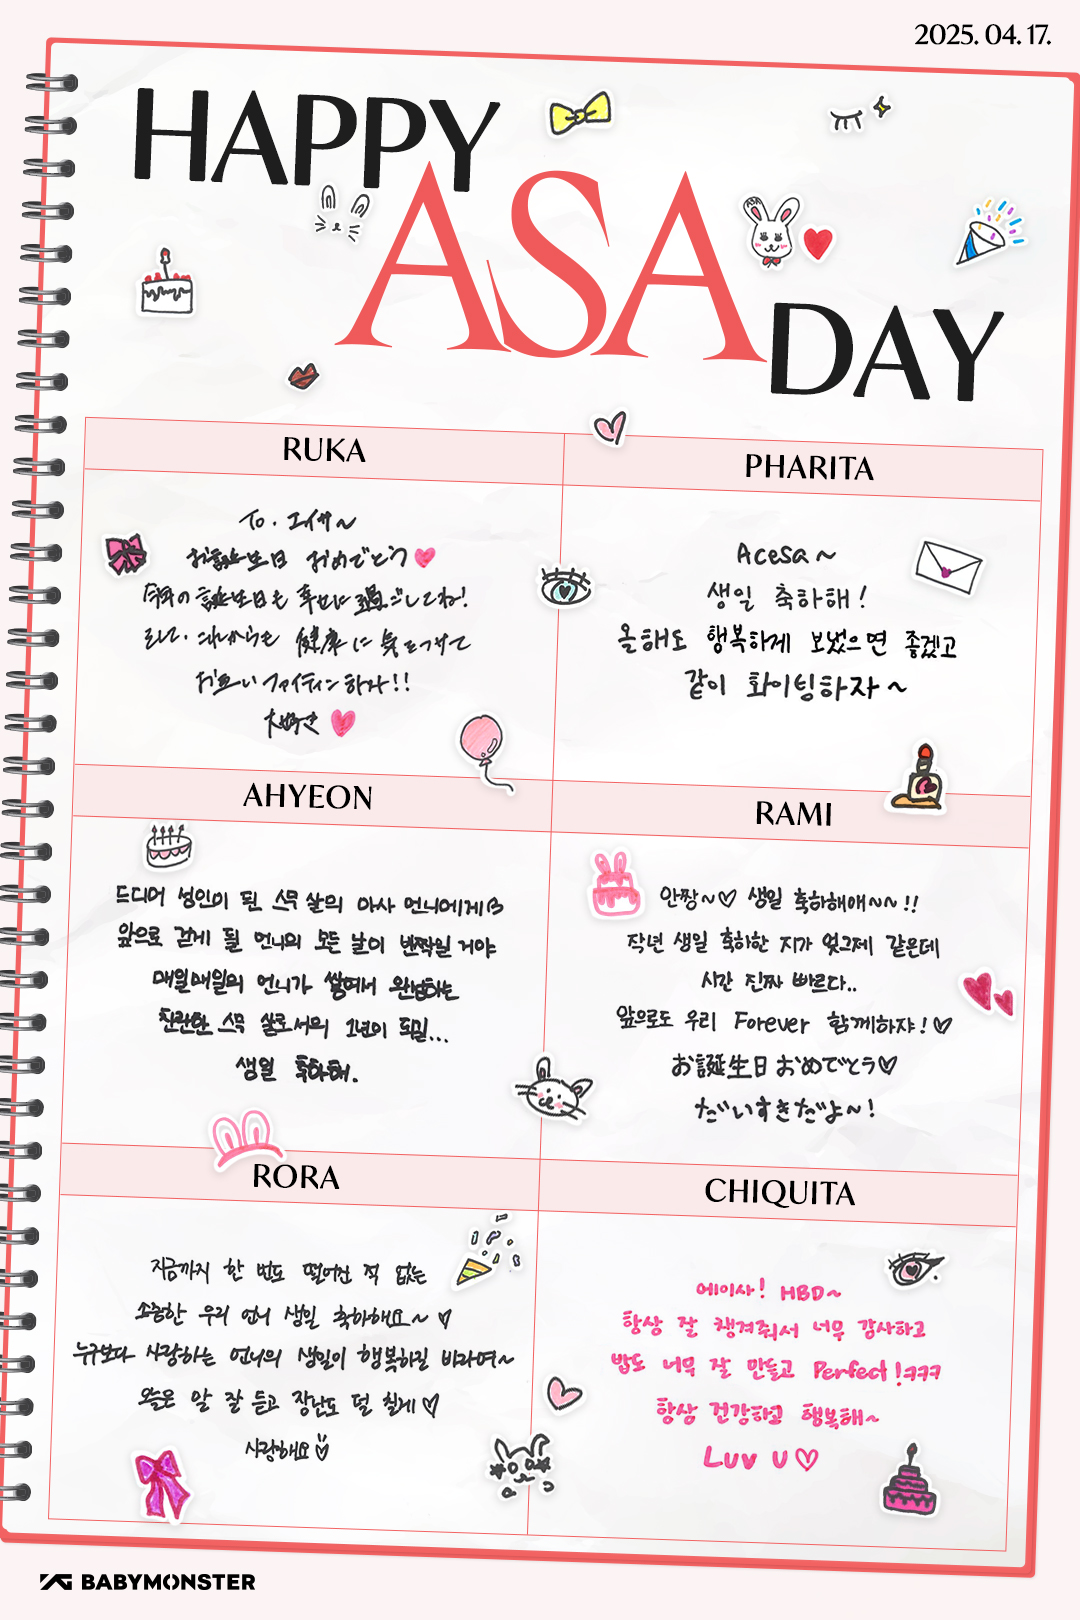 2025. 04. 17.
HAPPY
ASA
DAY
RUKA
To. エイサ~
お誕生日 おめでとう
今年の誕生日も 幸せに過ごしてね!
そして、これからも 健康に気をつけて
お互い ファイティン하자!!
大好き
PHARITA
Acesa~
생일 축하해!
올해도 행복하게 보냈으면 좋겠고
같이 화이팅하자~
AHYEON
드디어 성인이 된 스무 살의 아사 언니에게
앞으로 걷게 될 언니의 모든 날이 반짝일 거야
매일매일의 언니가 쌓여서 완성하는
찬란한 스무 살로서의 1년이 되길...
생일 축하해.
RAMI
안짱~♡ 생일 축하해애~~!!
작년 생일 축하한 지가 엊그제 같은데
시간 진짜 빠르다..
앞으로도 우리 Forever 함께하쟈!♡
お誕生日おめでとう♡
だいすきだよ~!
RORA
지금까지 한 번도 떨어진 적 없는
소중한 우리 언니 생일 축하해요~♡
누구보다 사랑하는 언니의 생일이 행복하길 바라며~
오늘은 말 잘 듣고 장난도 덜 칠게♡
사랑해요
CHIQUITA
에이사! HBD~
항상 잘 챙겨줘서 너무 감사하고
밥도 너무 잘 만들고 Perfect!ㅋㅋㅋ
항상 건강하고 행복해~
Luv U♡
YG BABYMONSTER